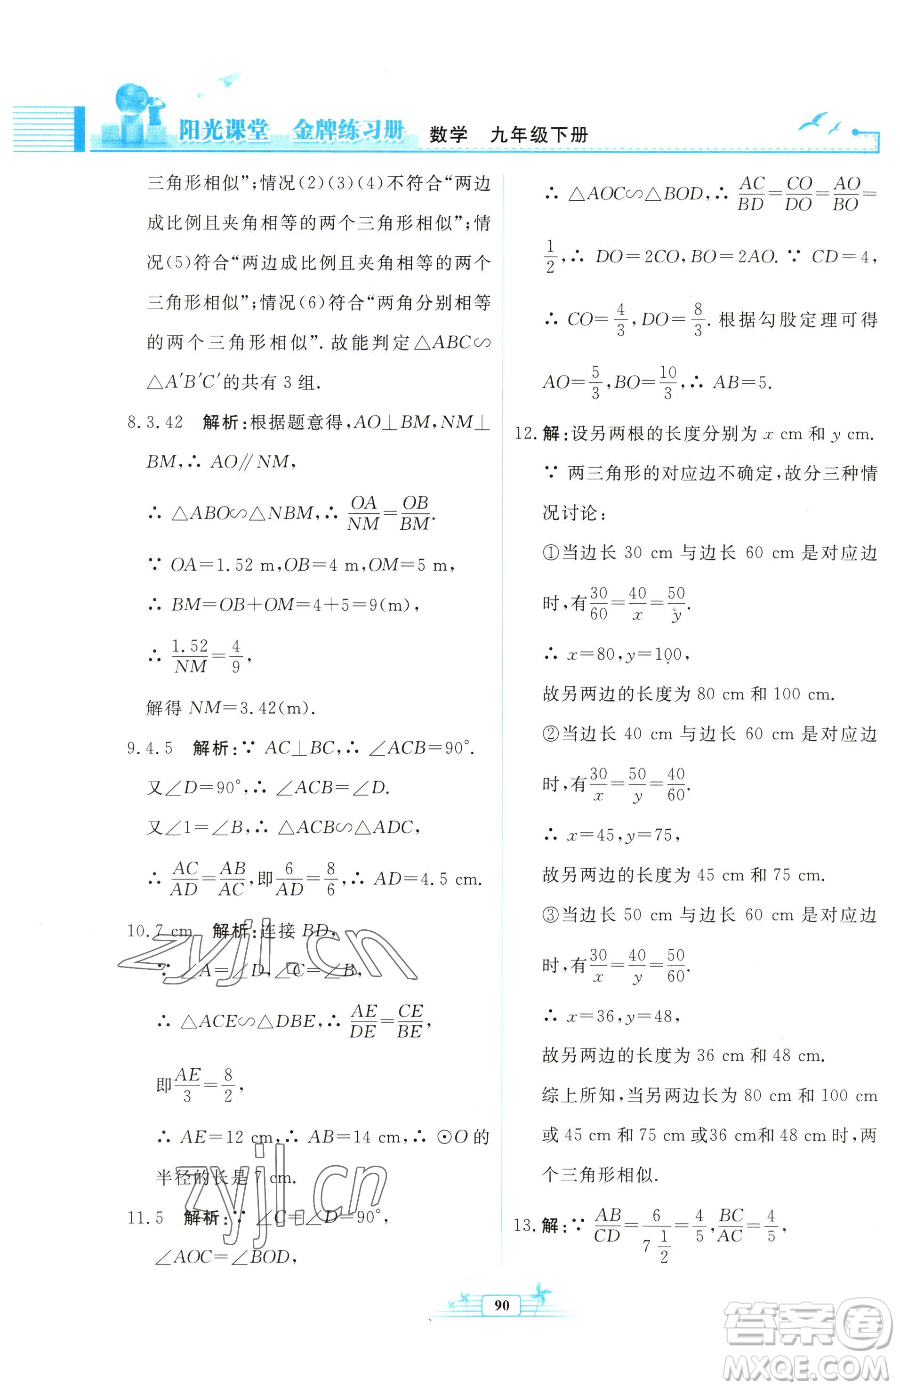 阳光课堂 金牌练习册 数学 九年级下册
三角形相似”;情况(2)(3)(4)不符合“两边
成比例且夹角相等的两个三角形相似”;情
况(5)符合“两边成比例且夹角相等的两个
三角形相似”;情况(6)符合“两角分别相等
的两个三角形相似”.故能判定△ABC∽
△A′B′C′的共有 3 组.
8.3.42 解析:根据题意得,AO⊥BM,NM⊥
BM,∴ AO∥NM,
∴ △ABO∽△NBM,∴ OA/NM=OB/BM.
∵ OA=1.52 m,OB=4 m,OM=5 m,
∴ BM=OB+OM=4+5=9(m),
∴ 1.52/NM=4/9,
解得 NM=3.42(m).
9.4.5 解析:∵ AC⊥BC,∴ ∠ACB=90°.
又∠D=90°,∴ ∠ACB=∠D.
又∠1=∠B,∴ △ACB∽△ADC,
∴ AC/AD=AB/AC,即6/AD=8/6,∴ AD=4.5 cm.
10.7 cm 解析:连接 BD,
∵ ∠A=∠D,∠C=∠B,
∴ △ACE∽△DBE,∴ AE/DE=CE/BE,
即AE/3=8/2,
∴ AE=12 cm,∴ AB=14 cm,∴ ⊙O 的
半径的长是 7 cm.
11.5 解析:∵ ∠C=∠D=90°,
∠AOC=∠BOD,
∴ △AOC∽△BOD,∴ AC/BD=CO/DO=AO/BO=
1/2,∴ DO=2CO,BO=2AO.∵ CD=4,
∴ CO=4/3,DO=8/3.根据勾股定理可得
AO=5/3,BO=10/3,∴ AB=5.
12.解:设另两根的长度分别为 x cm 和 y cm.
∵ 两三角形的对应边不确定,故分三种情
况讨论:
①当边长 30 cm 与边长 60 cm 是对应边
时,有30/60=40/x=50/y.
∴ x=80,y=100.
故另两边的长度为 80 cm 和 100 cm.
②当边长 40 cm 与边长 60 cm 是对应边
时,有30/x=50/y=40/60.
∴ x=45,y=75,
故另两边的长度为 45 cm 和 75 cm.
③当边长 50 cm 与边长 60 cm 是对应边
时,有30/x=40/y=50/60.
∴ x=36,y=48,
故另两边的长度为 36 cm 和 48 cm.
综上所知,当另两边长为 80 cm 和 100 cm
或 45 cm 和 75 cm 或36 cm 和 48 cm 时,两
个三角形相似.
13.解:∵ AB/CD=6/7 1/2=4/5,BC/AC=4/5,
90
zyjl.cn
zyjl.cn
答案圈
MXQE.COM